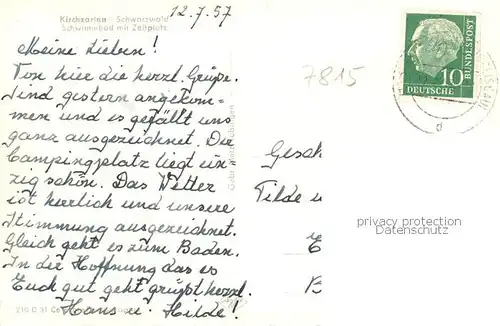 12.7.57
Kirchzarten - Schwarzwald
Schwimmbad mit Zeltplatz
Meine Lieben!
Von hier die herzl. Grüße.
Sind gestern angekom-
men und es gefällt uns
ganz ausgezeichnet. Der
Campingplatz liegt ein
zig schön. Das Wetter
ist herrlich und unsere
Stimmung ausgezeichnet.
Gleich geht es zum Baden.
In der Hoffnung das es
Euch gut geht grüßt herzl.
Hans u. Hilde!
210 D 31
7815
10
DEUTSCHE
BUNDESPOST
Gesch
Tilde u
privacy protection
Datenschutz